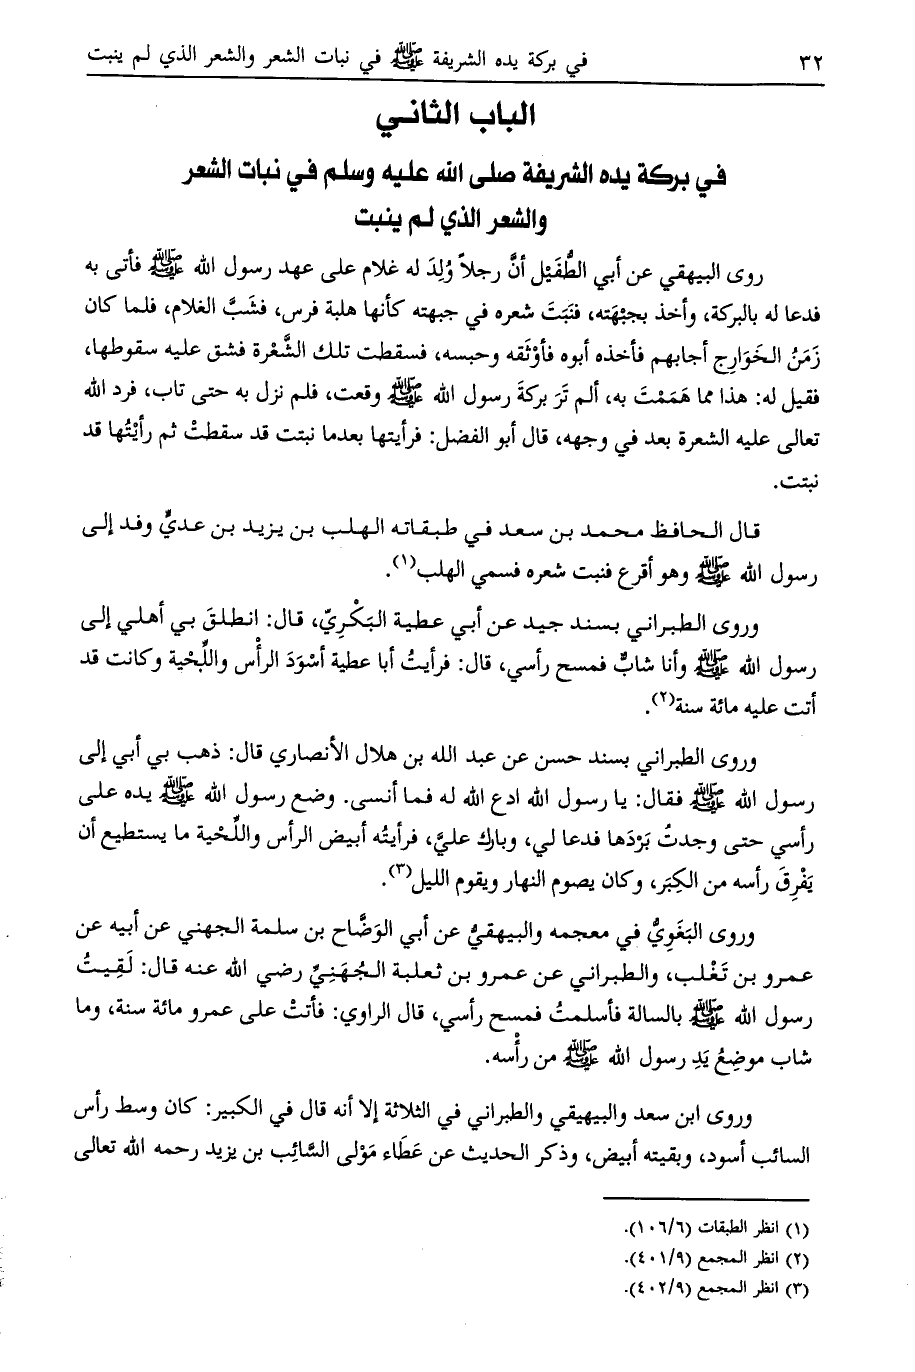 ٣٢ في بركة يده الشريفة ﷺ في نبات الشعر والشعر الذي لم ينبت
الباب الثاني
في بركة يده الشريفة صلى الله عليه وسلم في نبات الشعر
والشعر الذي لم ينبت
روى البيهقي عن أبي الطُّفَيْل أنَّ رجلاً وُلِدَ له غلام على عهد رسول الله ﷺ فأتى به
فدعا له بالبركة، وأخذ بجبْهَته، فنَبَتَ شعره في جبهته كأنها هلبة فرس، فشَبَّ الغلام، فلما كان
زَمَنُ الخَوَارِج أجابهم فأخذه أبوه فأوْثَقه وحبسه، فسقطت تلك الشَّعْرة فشق عليه سقوطها،
فقيل له: هذا مما هَمَمْتَ به، ألم تَرَ بركةَ رسول الله ﷺ وقعت، فلم نزل به حتى تاب، فرد الله
تعالى عليه الشعرة بعد في وجهه، قال أبو الفضل: فرأيتها بعدما نبتت قد سقطتْ ثم رأيْتُها قد
نبتت.
قال الحافظ محمد بن سعد في طبقاته الهلب بن يزيد بن عديٍّ وفد إلى
رسول الله ﷺ وهو أقرع فنبت شعره فسمي الهلب(١).
وروى الطبراني بسند جيد عن أبي عطية البَكْرِيّ، قال: انطلقَ بي أهلي إلى
رسول الله ﷺ وأنا شابٌّ فمسح رأسي، قال: فرأيتُ أبا عطية أسْوَدَ الرأْس واللِّحْية وكانت قد
أتت عليه مائة سنة(٢).
وروى الطبراني بسند حسن عن عبد الله بن هلال الأنصاري قال: ذهب بي أبي إلى
رسول الله ﷺ فقال: يا رسول الله ادع الله له فما أنسى. وضع رسول الله ﷺ يده على
رأسي حتى وجدتُ بَرْدَها فدعا لي، وبارك عليَّ، فرأيتُه أبيض الرأس واللِّحْية ما يستطيع أن
يَفْرِقَ رأسه من الكِبَر، وكان يصوم النهار ويقوم الليل(٣).
وروى البَغَوِيُّ في معجمه والبيهقيُّ عن أبي الوَضَّاح بن سلمة الجهني عن أبيه عن
عمرو بن تَغْلب، والطبراني عن عمرو بن ثعلبة الجُهَنِيِّ رضي الله عنه قال: لَقِيتُ
رسول الله ﷺ بالسالة فأسلمتُ فمسح رأسي، قال الراوي: فأتتْ على عمرو مائة سنة، وما
شاب موضِعُ يَدِ رسول الله ﷺ من رأْسه.
وروى ابن سعد والبيهيقي والطبراني في الثلاثة إلا أنه قال في الكبير: كان وسط رأس
السائب أسود، وبقيته أبيض، وذكر الحديث عن عَطَاء مَوْلى السَّائِب بن يزيد رحمه الله تعالى
(١) انظر الطبقات (١٠٦/٦).
(٢) انظر المجمع (٤٠١/٩).
(٣) انظر المجمع (٤٠٢/٩).